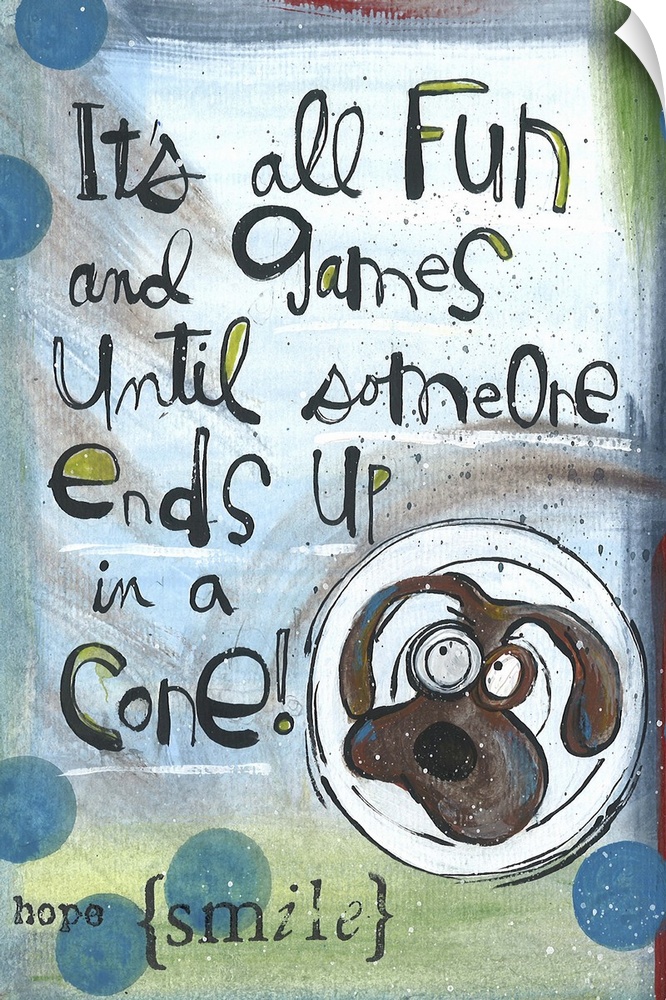 It's all Fun
and games
until someone
ends up
in a
Cone!
hope {smile}